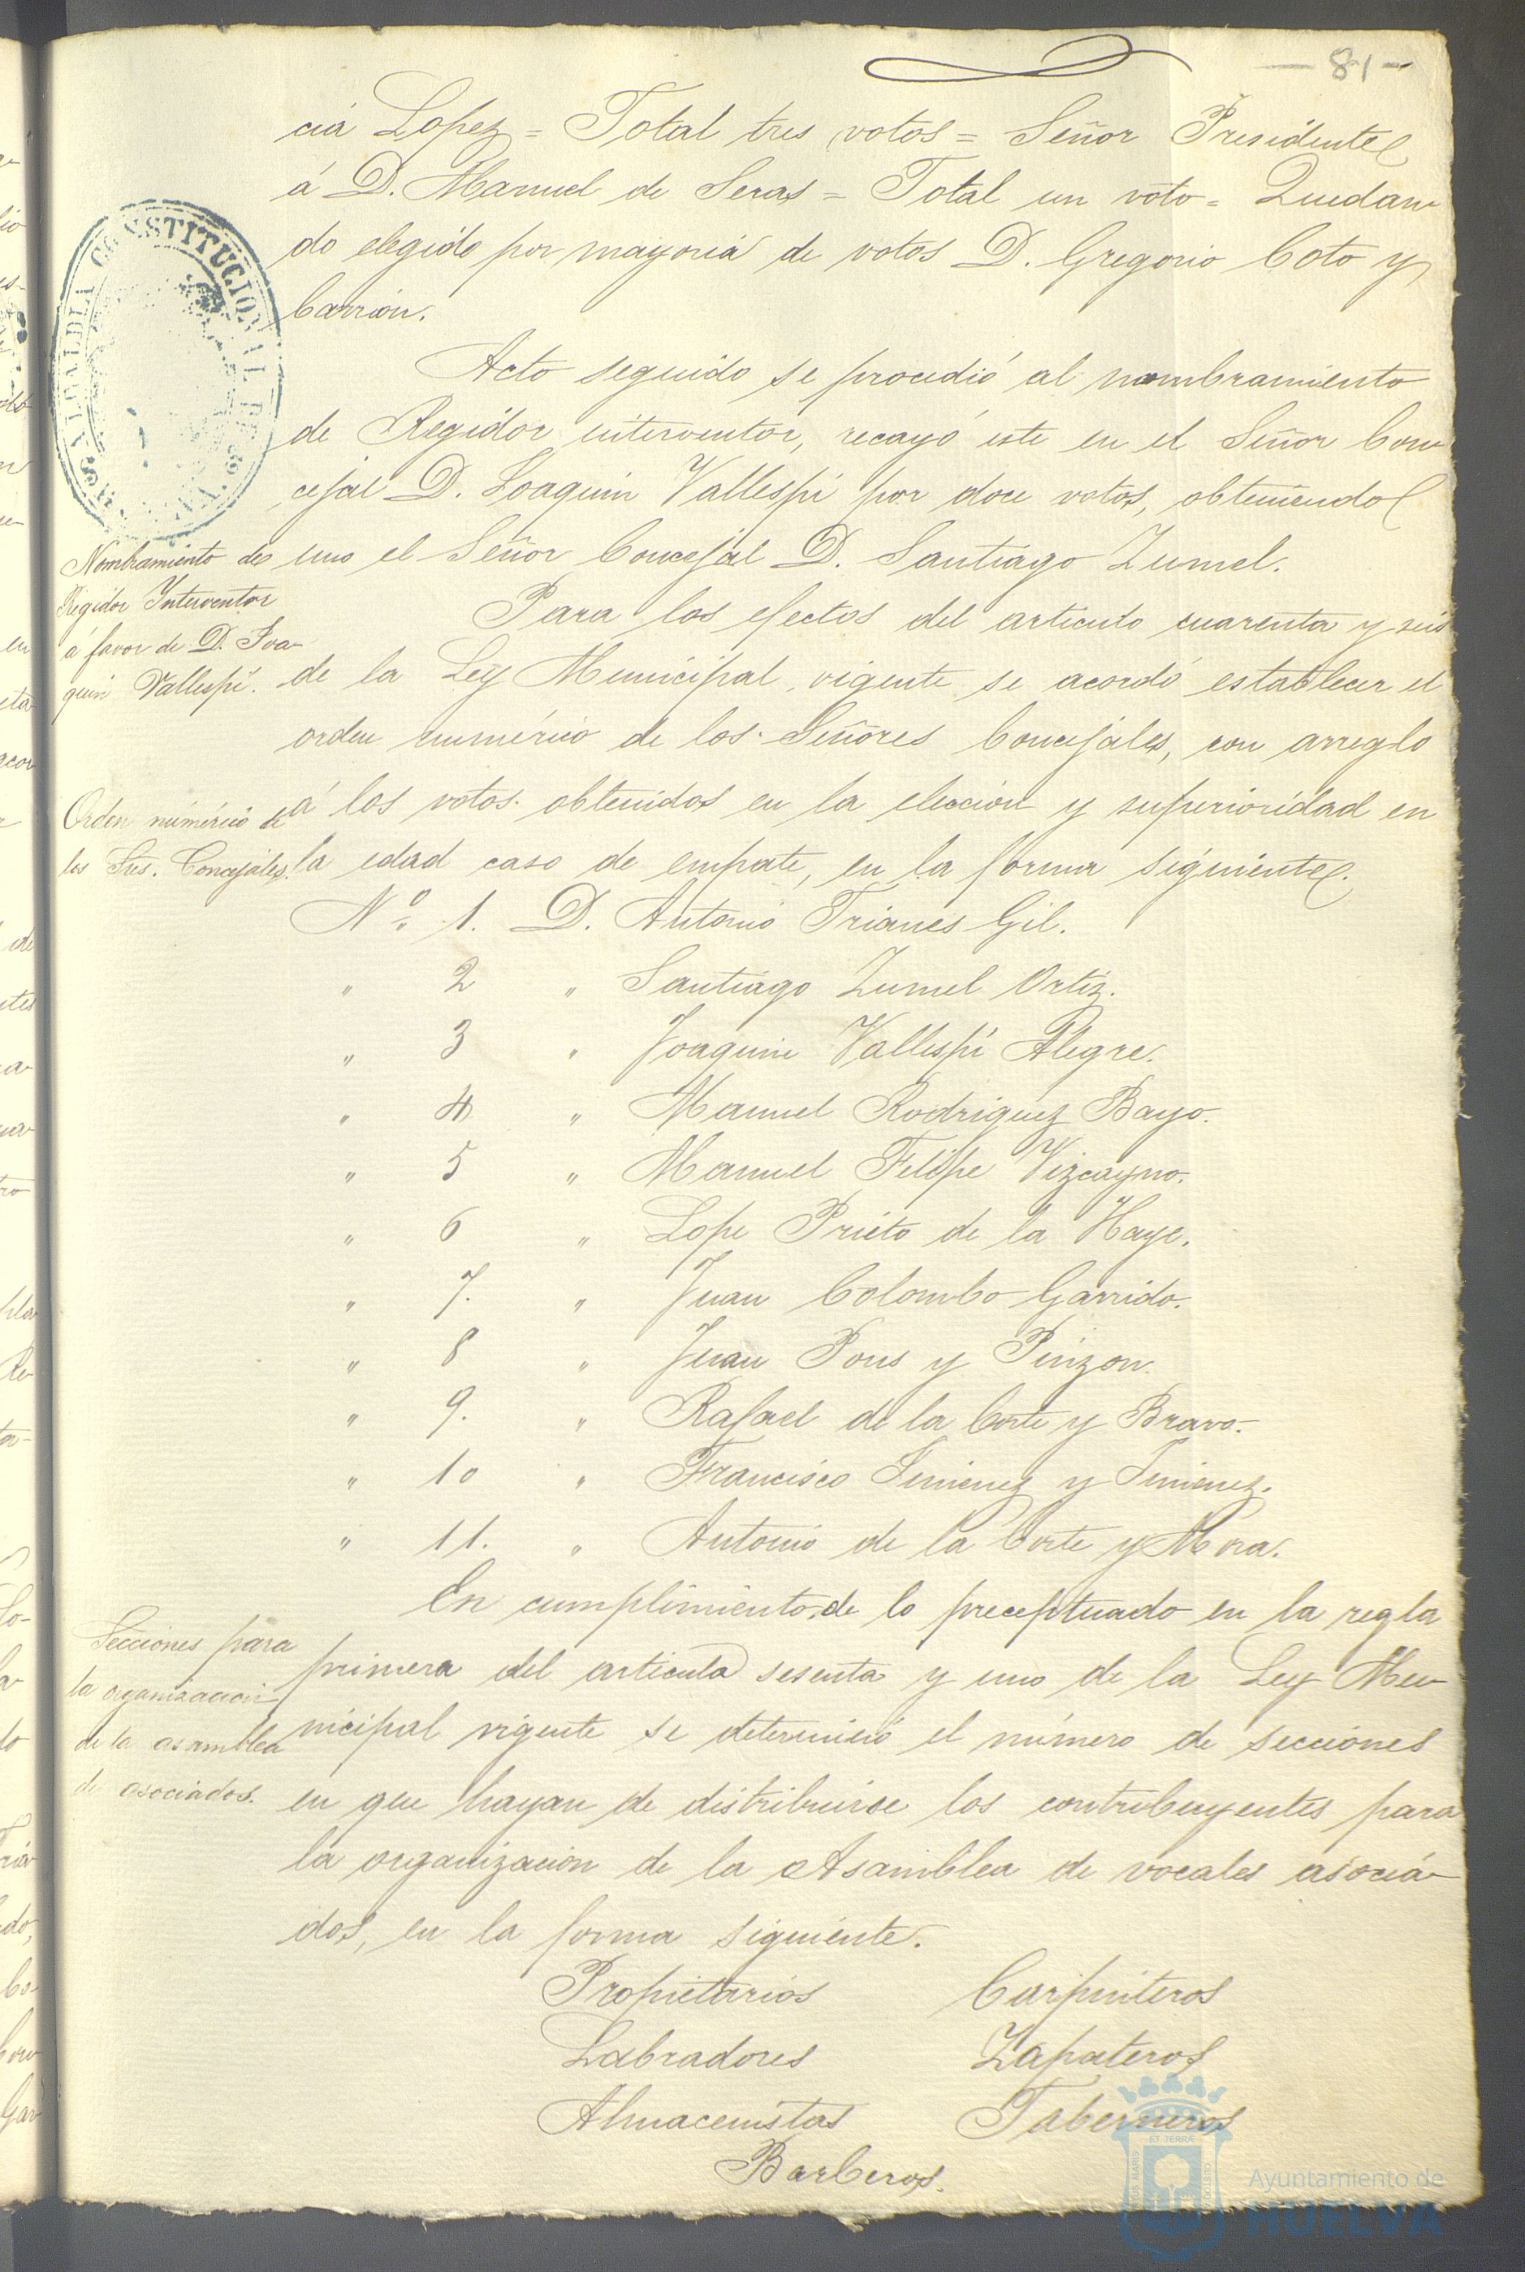 - 81 -
cia Lopez = Total tres votos = Señor Presidente
á D. Manuel de Seras = Total un voto = Quedan-
do elegido por mayoria de votos D. Gregorio Coto y
Carrión.
Acto seguido se procedió al nombramiento
de Regidor interventor, recayó éste en el Señor Con-
cejal D. Joaquin Vallespi por doce votos, obteniendo
uno el Señor Concejal D. Santiago Zumel.
Nombramiento de
Regidor Interventor
á favor de D. Joa-
quin Vallespi.
Para los efectos del articulo cuarenta y seis
de la Ley Municipal vigente se acordó establecer el
orden numérico de los Señores Concejales, con arreglo
á los votos obtenidos en la elección y superioridad en
la edad caso de empate, en la forma siguiente.
Orden númérico de
los Sres. Concejales.
Nº 1. D. Antonio Trianes Gil.
" 2 " Santiago Zumel Ortiz.
" 3 " Joaquin Vallespi Alegre.
" 4 " Manuel Rodriguez Bayo.
" 5 " Manuel Felipe Vizcayno.
" 6 " Lope Prieto de la Haye.
" 7. " Juan Colombo Garrido.
" 8 " Juan Pons y Pinzon.
" 9. " Rafael de la Corte y Bravo.
" 10 " Francisco Jimenez y Jimenez.
" 11. " Antonio de la Corte y Mora.
En cumplimiento de lo preceptuado en la regla
primera del articulo sesenta y uno de la Ley Mu-
nicipal vigente se determinó el número de secciones
en que hayan de distribuirse los contribuyentes para
la organización de la Asamblea de vocales asocia-
dos, en la forma siguiente.
Secciones para
la organizacion
de la asamblea
de asociados.
Propietarios Carpinteros
Labradores Zapateros
Almacenistas Taberneros
Barberos.
ALCALDIA CONSTITUCIONAL DE
Ayuntamiento de
HUELVA